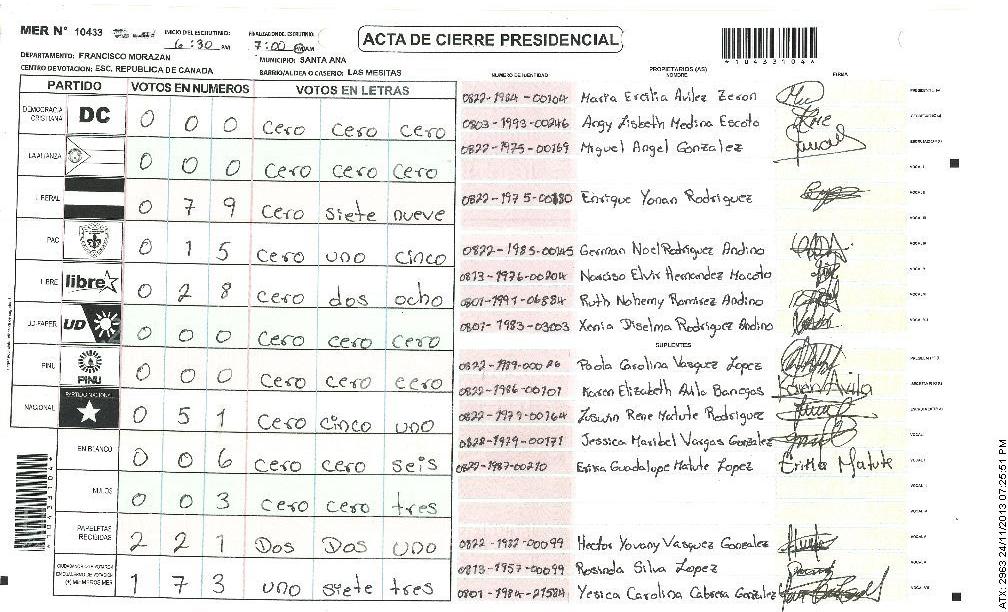 MER N° 10433
INICIO DEL ESCRUTINIO:
6:30 PM
7:00
ACTA DE CIERRE PRESIDENCIAL
*104331044*
DEPARTAMENTO: FRANCISCO MORAZAN
MUNICIPIO: SANTA ANA
CENTRO DE VOTACION: ESC. REPUBLICA DE CANADA
BARRIO/ALDEA O CASERIO: LAS MESITAS
NUMERO DE IDENTIDAD
PROPIETARIOS (AS)
NOMBRE
FIRMA
PARTIDO VOTOS EN NUMEROS VOTOS EN LETRAS
DEMOCRACIA CRISTIANA DC 0 0 0 cero cero cero
LA ALIANZA 0 0 0 cero cero cero
LIBERAL 0 7 9 cero siete nueve
PAC 0 1 5 cero uno cinco
LIBRE libre 0 2 8 cero dos ocho
UD-FAPER UD 0 0 0 cero cero cero
PINU PINU 0 0 0 cero cero cero
NACIONAL PARTIDO NACIONAL 0 5 1 cero cinco uno
EN BLANCO 0 0 6 cero cero seis
NULOS 0 0 3 cero cero tres
PAPELETAS RECIBIDAS 2 2 1 Dos Dos uno
1 7 3 uno siete tres
0822-1984-00104 Maria Ercilia Avilez Zeron
0803-1993-00246 Angy Lisbeth Medina Escoto
0822-1975-00169 Miguel Angel Gonzalez
0822-1975-00180 Enrique Yonan Rodriguez
0822-1985-00145 German Noel Rodriguez Andino
0813-1976-00204 Narciso Elvir Hernandez
0801-1991-06884 Ruth Nohemy Ramirez Andino
0801-1983-03003 Xenia Diselma Rodriguez Andino
SUPLENTES
Paola Carolina Vasquez Lopez
0822-1986-00101 Karen Elizabeth Avila Banegas Karen Avila
0822-1979-00164 Rene Matute Rodriguez
Jessica Maribel Vargas Gonzalez
0822-1987-00210 Erika Guadalupe Matute Lopez Erika Matute
0822-1982-00099 Hector Yovany Vasquez Gonzalez
0813-1957-00099 Rosinda Silva Lopez
0801-1984-21584 Yesica Carolina Cabrera Gonzalez
*104331044*
ATX-2963 24/11/2013 07:25:51 PM